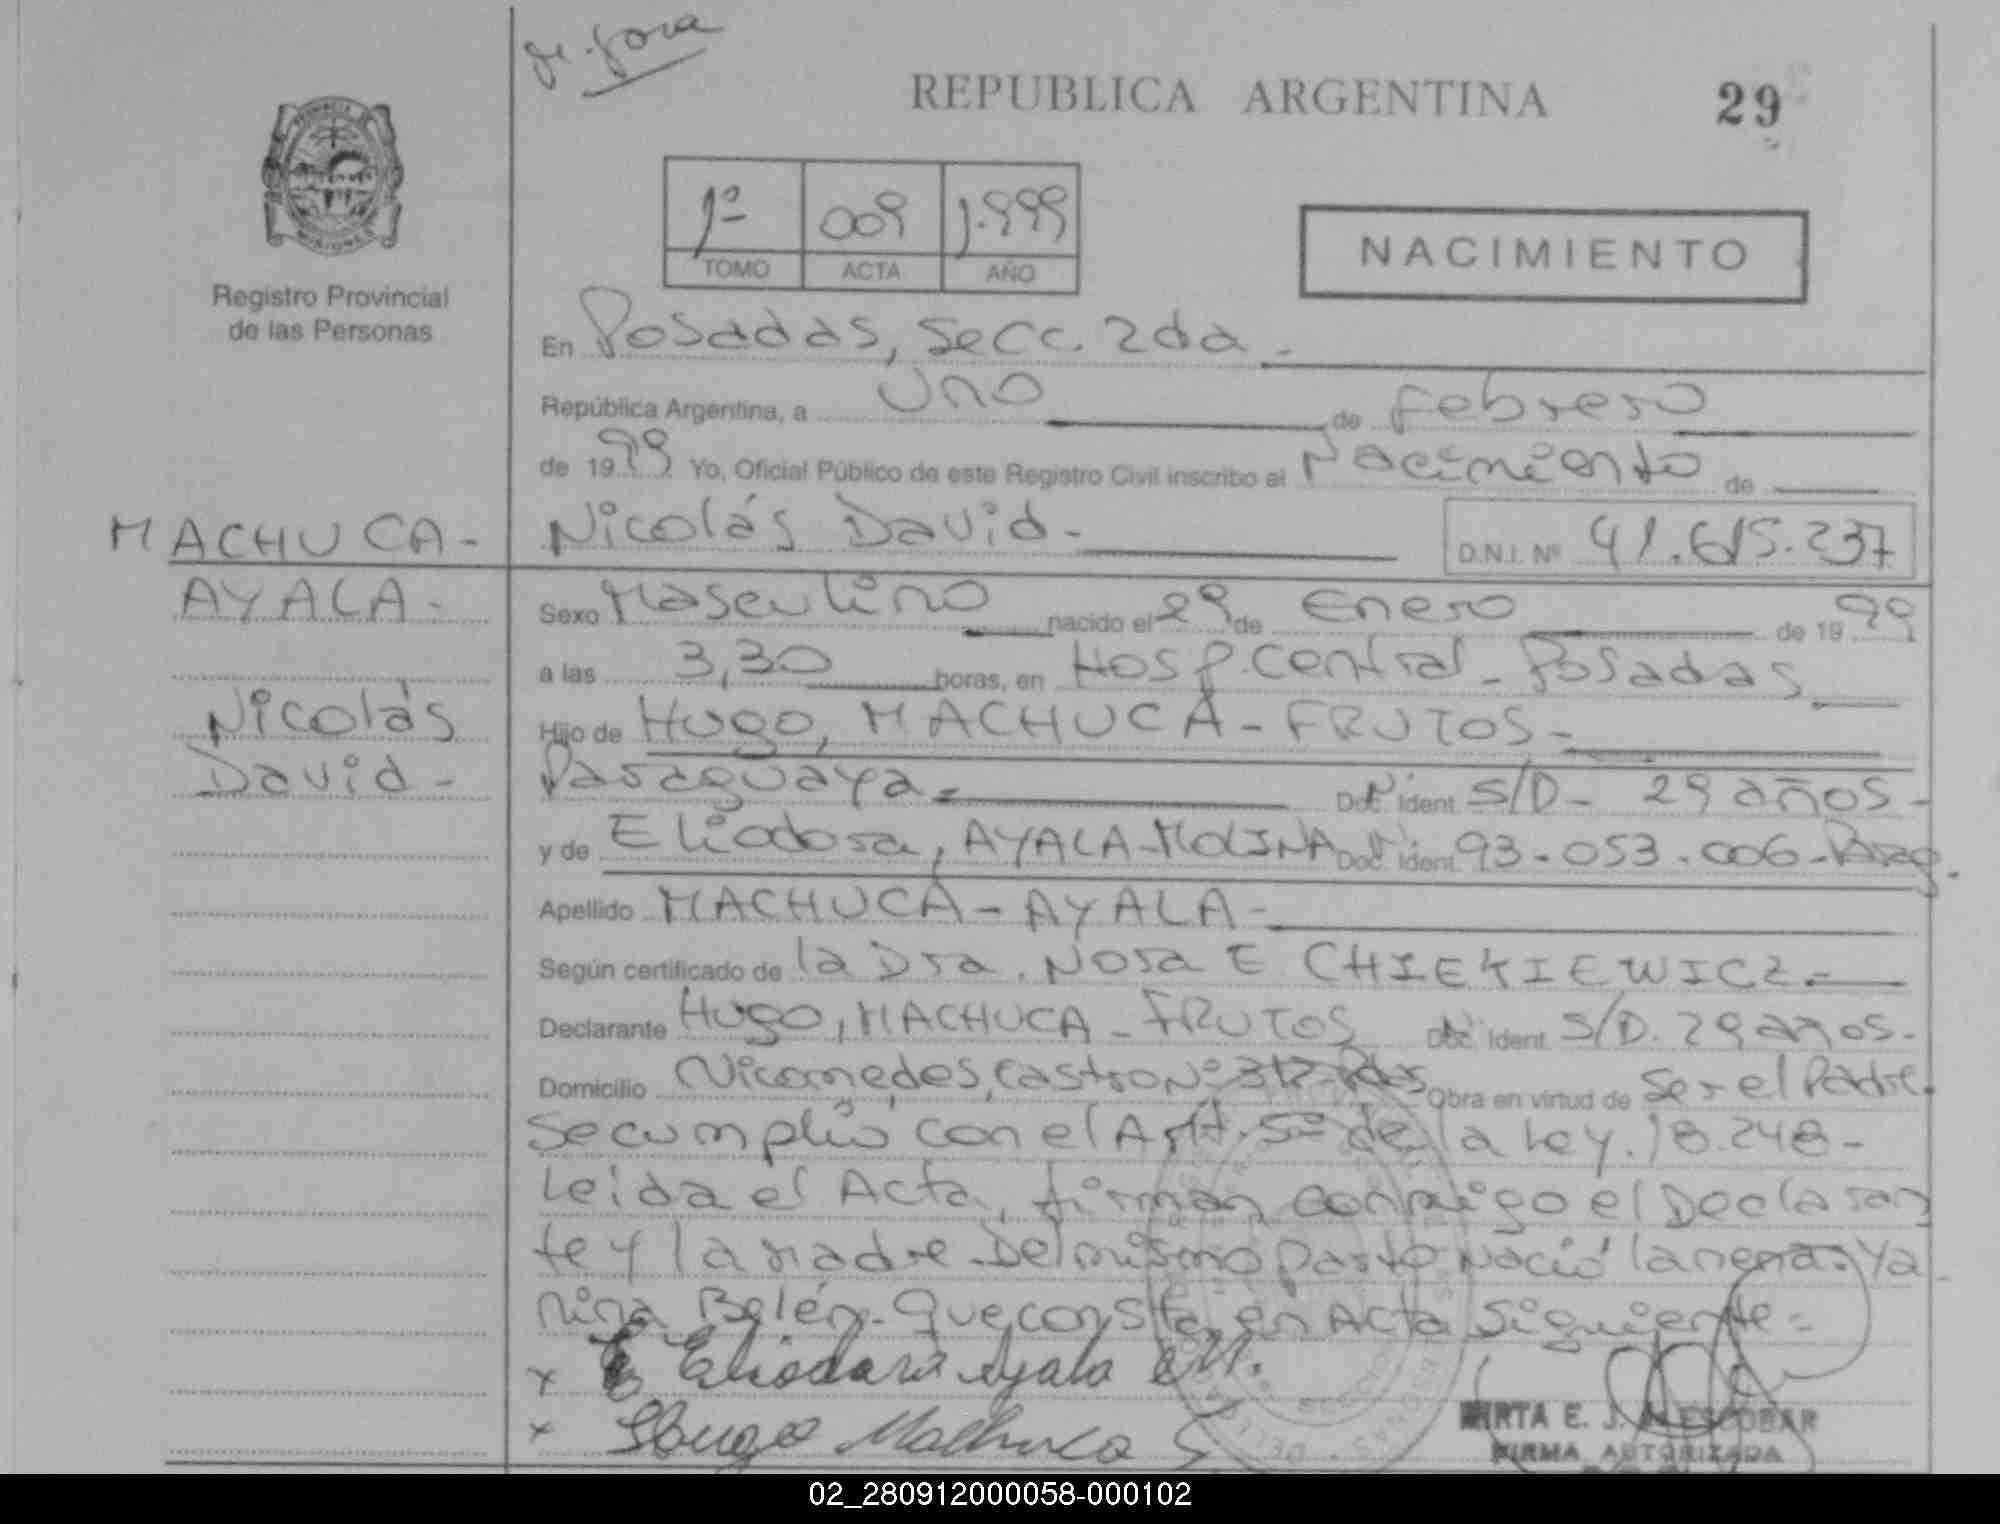 REPUBLICA ARGENTINA 29
1º 009 1.999
TOMO ACTA AÑO
NACIMIENTO
PROVINCIA DE MISIONES
Registro Provincial
de las Personas
En Posadas, Secc. 2da -
República Argentina, a uno de Febrero
de 1999 Yo, Oficial Público de este Registro Civil inscribo el Nacimiento de
MACHUCA- Nicolás David- D.N.I. Nº 41.615.237
AYALA- Sexo Masculino nacido el 29 de Enero de 1999
a las 3,30 horas, en Hosp. Central - Posadas
Nicolás Hijo de Hugo, MACHUCA - FRUTOS-
David- Paraguaya- Doc. Ident. S/D- 29 años-
y de Eliodora, AYALA-MOLINA Doc. Ident. 93-053.006-Parag.
Apellido MACHUCA - AYALA-
Según certificado de la Dra. Nora E. CHIEKIEWICZ-
Declarante Hugo, MACHUCA - FRUTOS Doc. Ident. S/D. 29 años-
Domicilio Nicomedes, Castro Nº 317-Pdas Obra en virtud de Ser el Padre.
Se cumplió con el Art. 5º de la Ley. 18.248-
Leida el Acta, firman conmigo el Declaran
te y la Madre Del mismo Parto Nació la nena: Ya
nina Belén- Que consta en Acta Siguiente=
x Eliodora Ayala M.
x Hugo Machuca
MIRTA E. J. ESCOBAR
FIRMA AUTORIZADA
02_280912000058-000102